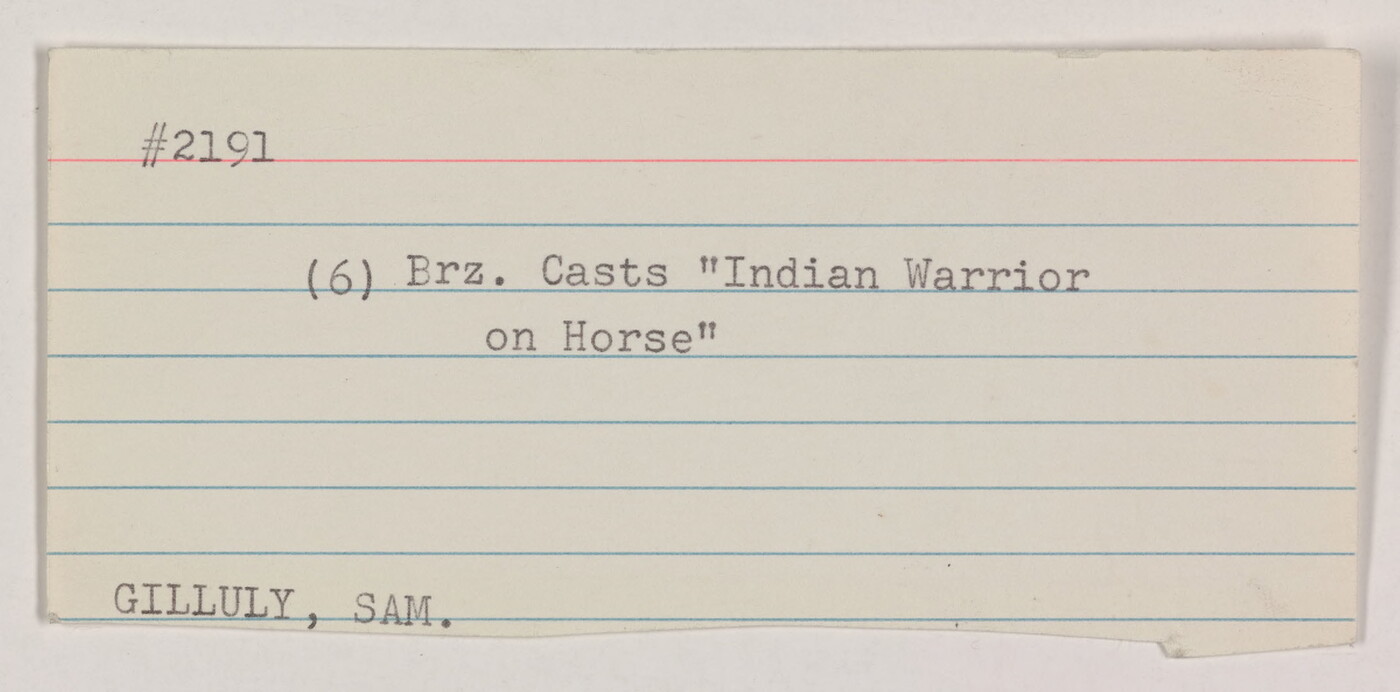 #2191
(6) Brz. Casts "Indian Warrior
on Horse"
GILLULY, SAM.